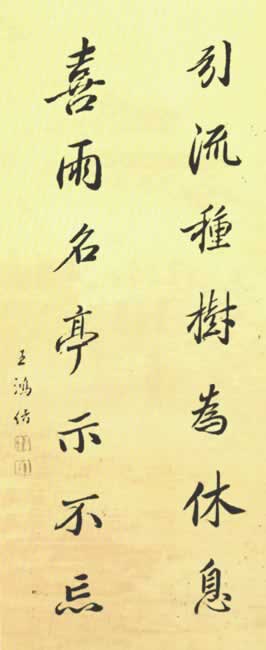 引流種樹為休息
喜雨名亭示不忘
王鴻緒